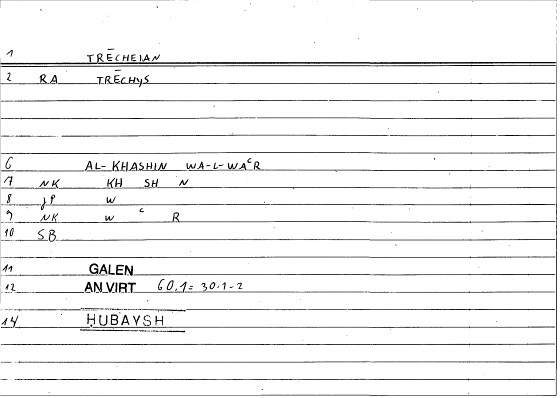 1 TRĒCHEIAN
2 RA TRĒCHYS
6 AL-KHASHIN WA-L-WAᶜR
7 NK KH SH N
8 JP W
9 NK W ᶜ R
10 SB
11 GALEN
12 AN VIRT 60.1= 30.1-2
14 HUBAYSH